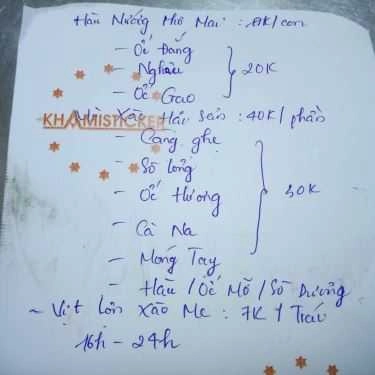 Hàu Nướng Phô Mai : 8K/con
- Ốc Đắng
- Nghêu } 20K
- Ốc Gạo
Mì Xào Hải Sản : 40K/phần
KHAMISTICKER
- Càng ghẹ
- Sò Lông
- Ốc Hương } 30K
- Cà Na
- Móng Tay
- Hàu / Ốc Mỡ / Sò Dương
~ Vịt Lộn Xào Me : 7K / Trái
16h - 24h